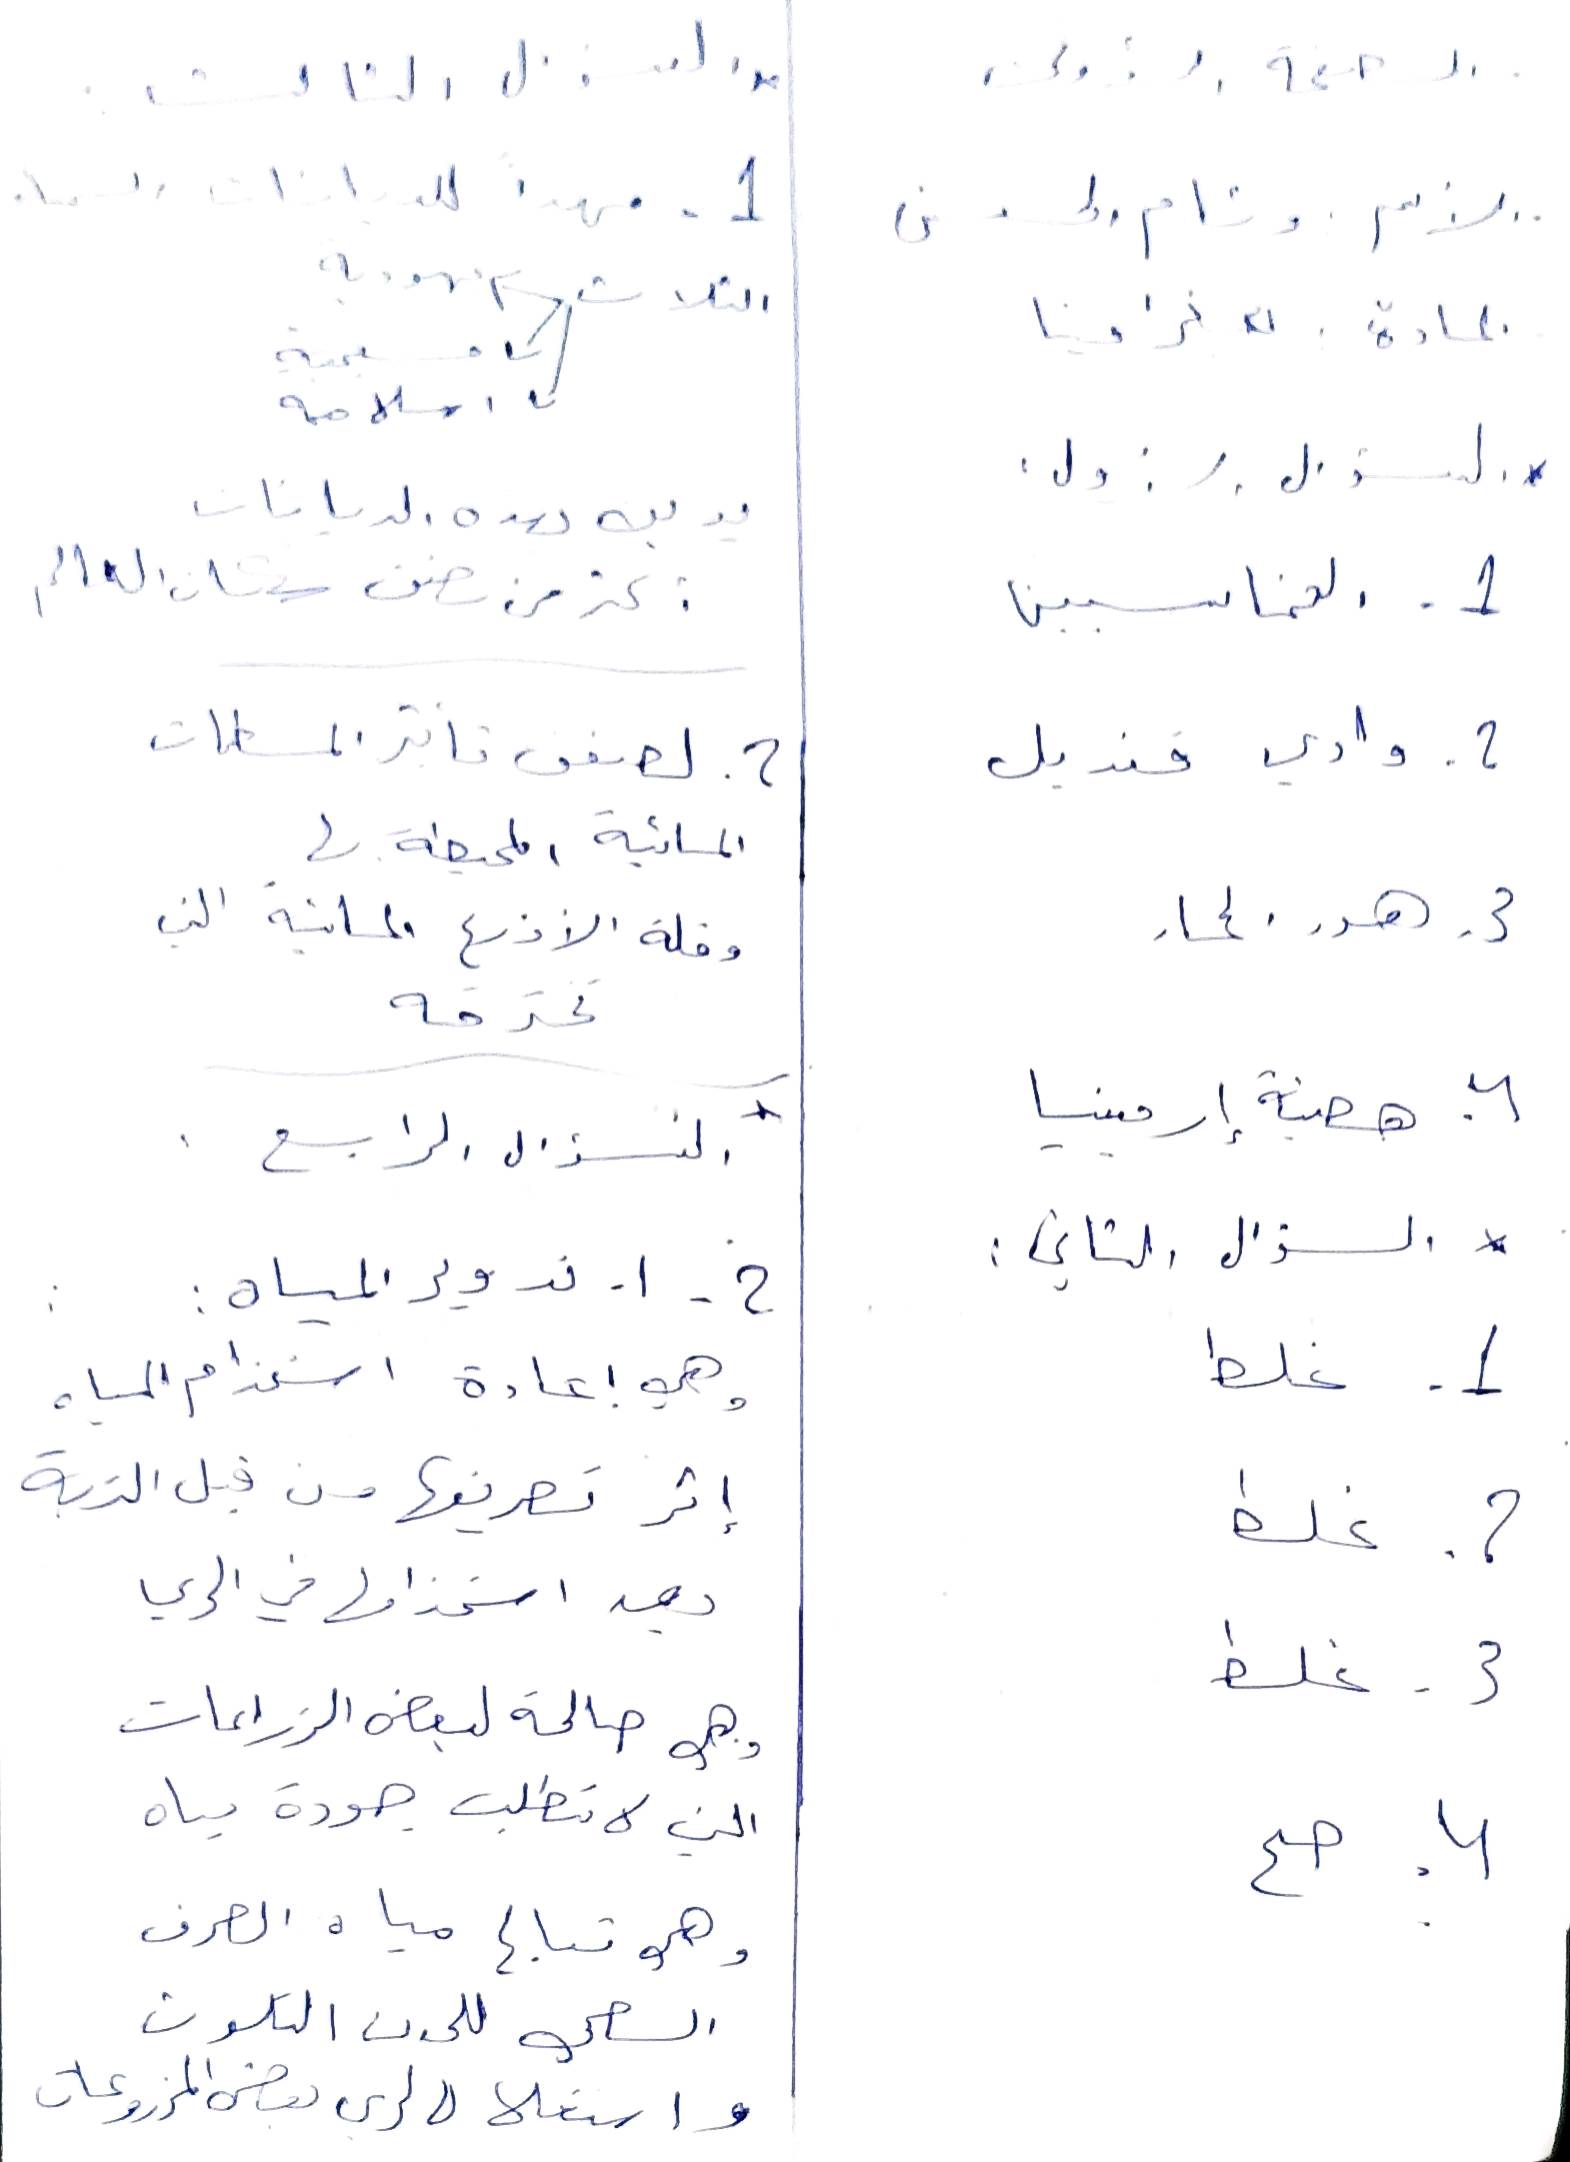 الصفحة الأولى
الاسم: وسام الحسن
المادة: الجغرافيا
* السؤال الأول:
1- العباسيين
2. وادي قنديل
3. هدر الماء
4. هضبة إرمينيا
* السؤال الثاني:
1- غلط
2. غلط
3- غلط
4. صح
* السؤال الثالث:
1- مهداً للديانات السماوية
الثلاث يهودية
مسيحية
اسلامية
يدين بهذه الديانات
أكثر من نصف سكان العالم
2. لضعف تأثير المسطحات
المائية المحيطة به
وقلة الأذرع المائية التي
تخترقه
* السؤال الرابع:
2- 1- تدوير المياه:
وهي إعادة استخدام المياه
إثر تصريفها من قبل التربة
بعد استخدامها في الري
وهي صالحة لبعض الزراعات
التي لا تتطلب جودة مياه
وهي تعالج مياه الصرف
الصحي للحد من التلوث
واستغلالها لري بعض المزروعات